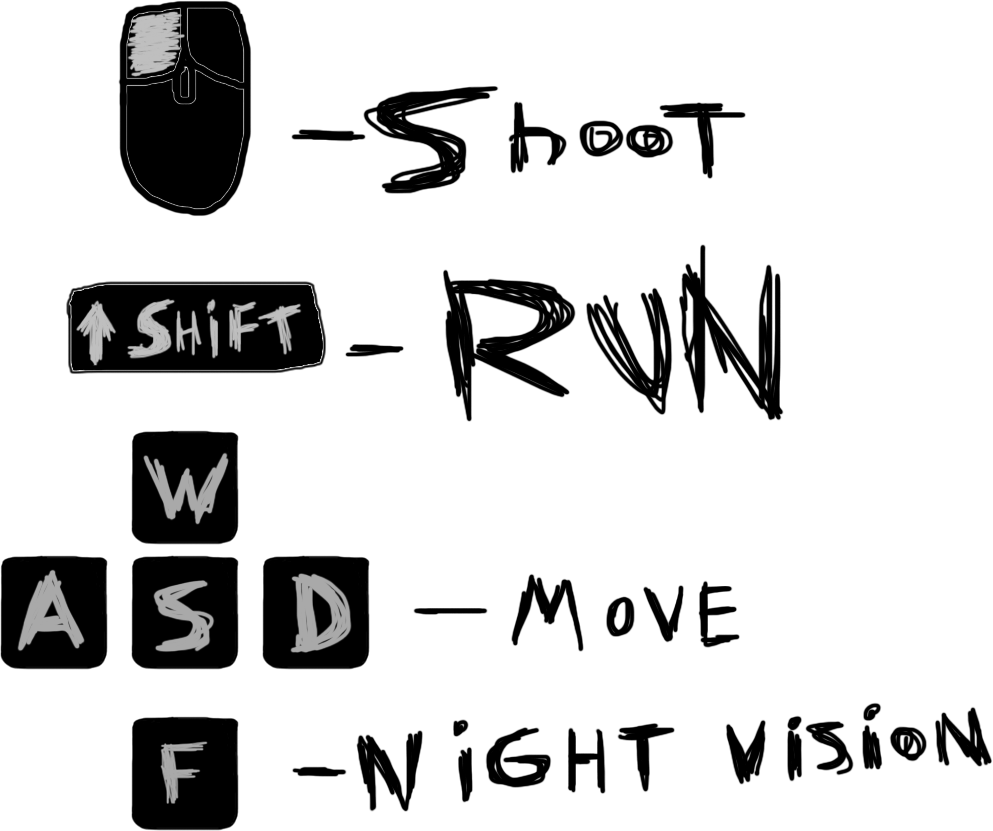 - Shoot
↑ SHiFT - RUN
W
A S D - MOVE
F - NiGHT ViSiON